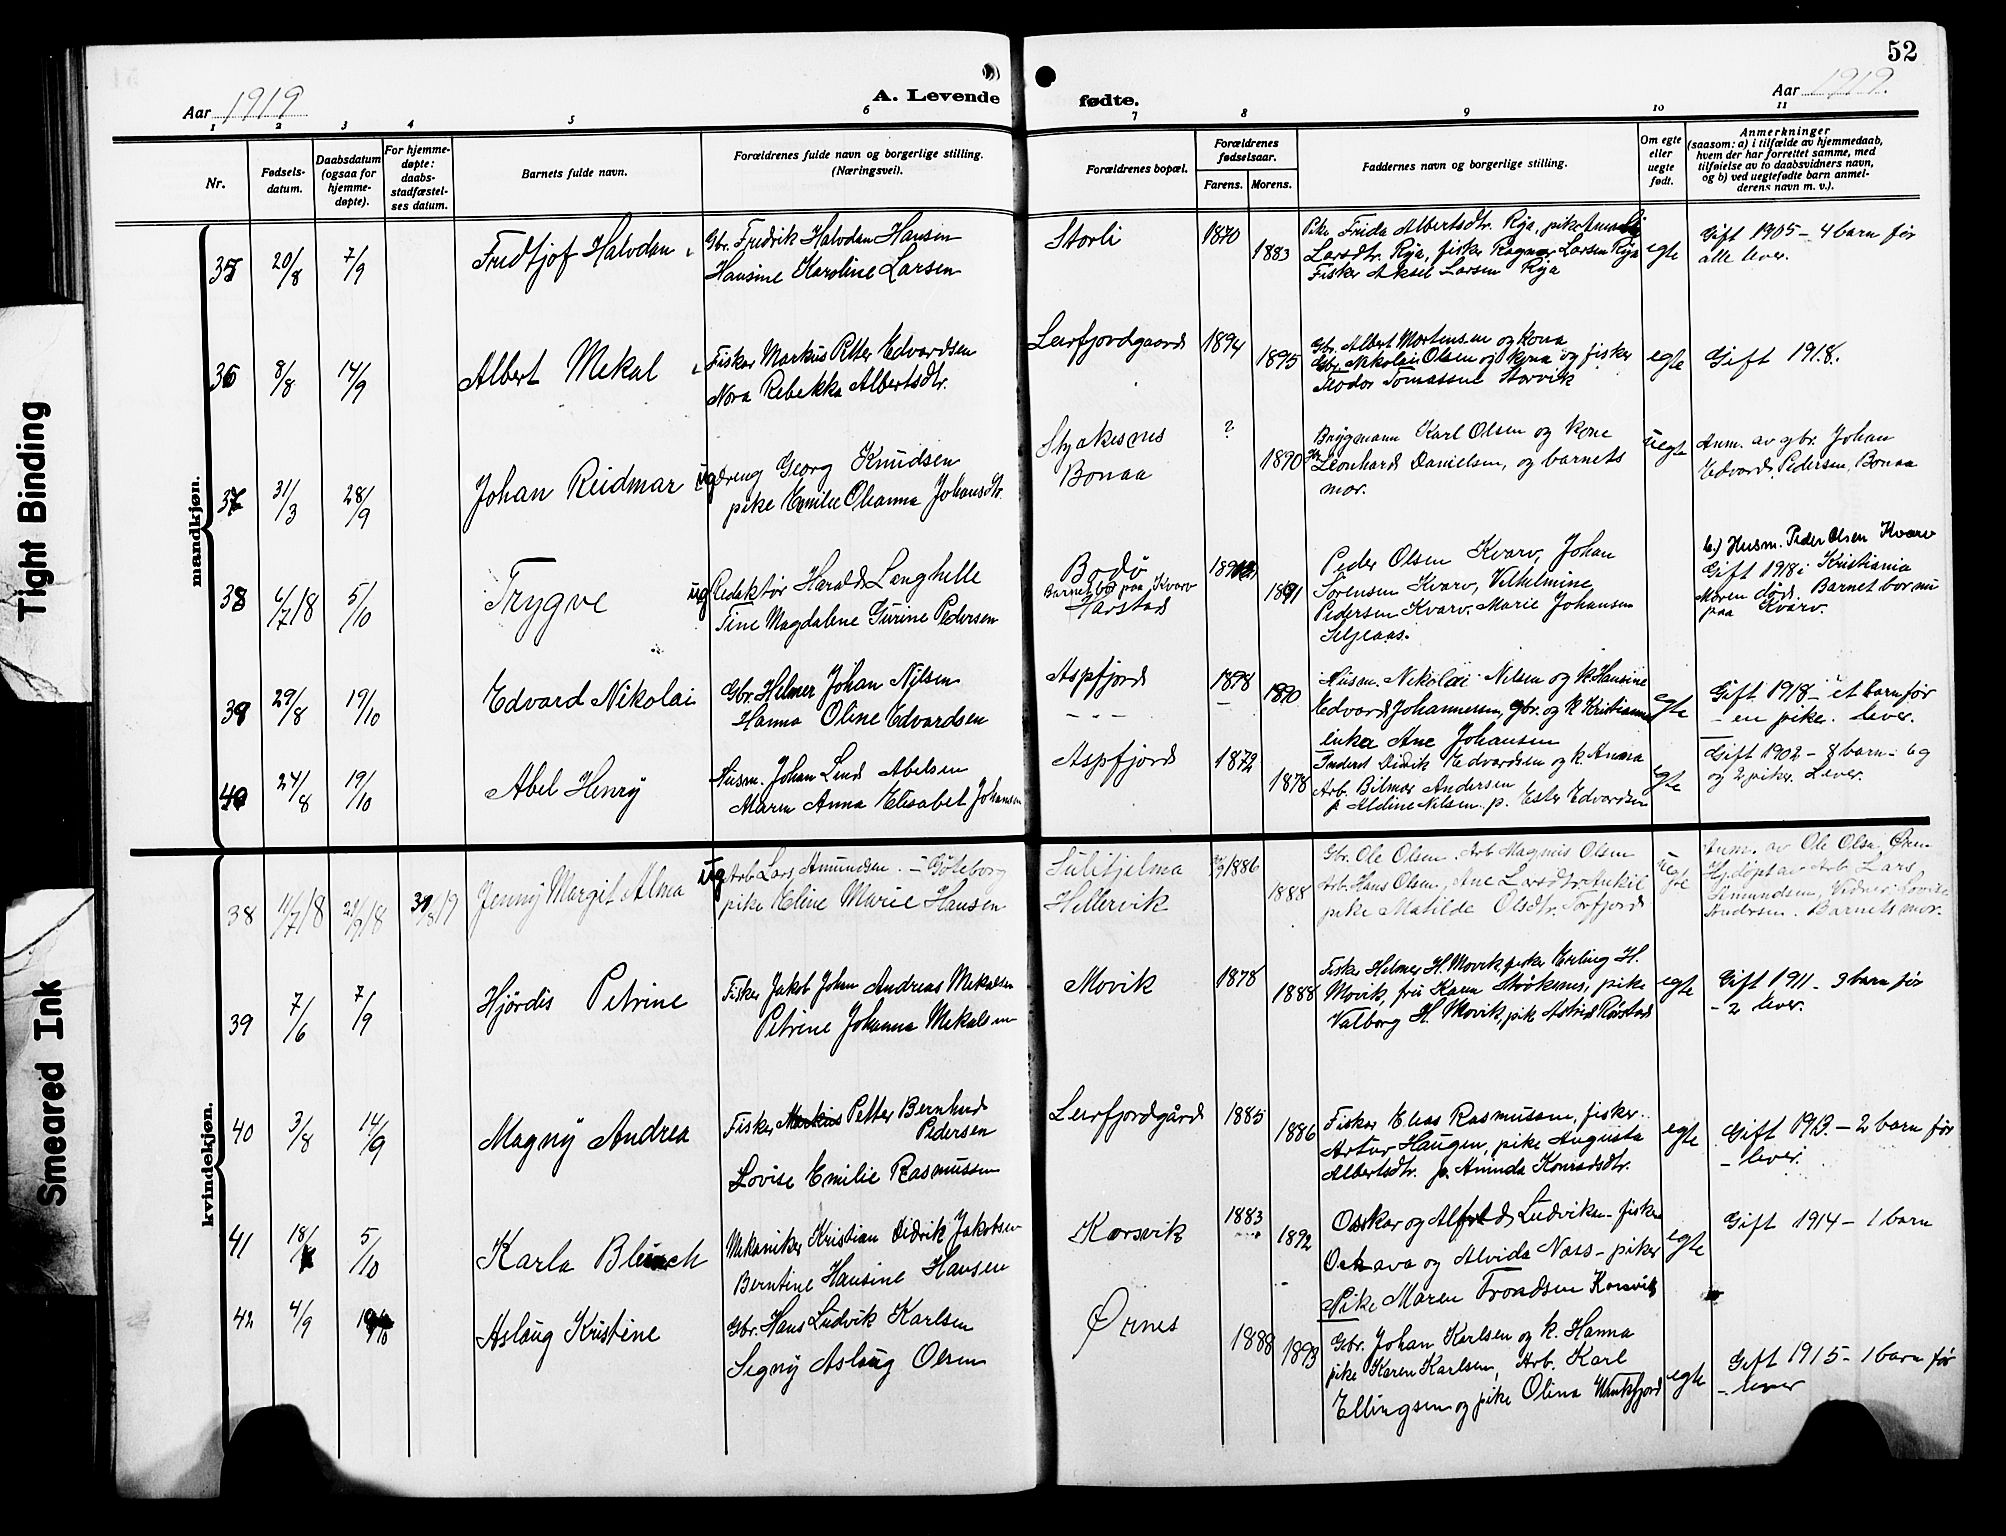 52
Aar 1919
A. Levende
fødte.
Aar 1919.
1 2 3 4 5 6 7 8 9 10 11
Nr.
Fødsels-
datum.
Daabsdatum
(ogsaa for
hjemme-
døpte).
For hjemme-
døpte:
daabs-
stadfæstel-
ses datum.
Barnets fulde navn.
Forældrenes fulde navn og borgerlige stilling.
(Næringsvei).
Forældrenes bopæl.
Forældrenes
fødselsaar.
Farens. Morens.
Faddernes navn og borgerlige stilling.
Om egte
eller
uegte
født.
Anmerkninger
(saasom: a) i tilfælde av hjemmedaab,
hvem der har forrettet samme, med
tilføielse av to daabsvidners navn,
og b) ved uegtefødte barn anmel-
derens navn m. v.).
mandkjøn.
35 20/8 7/9 Fridtjof Halvdan
Gbr. Fredrik Halvdan Hansen
Hansine Karoline Larsen
Storli 1870 1883
Pike Frida Albertsdtr. Rya, pike
Larsdtr. Rya, fisker Ragnar Larsen Rya
Fisker Aksel Larsen Rya
egte
Gift 1905 - 4 barn før
alle lever.
36 8/8 14/9 Albert Mekal
Fisker Markus Petter Edvardsen
Nora Rebekka Albertsdtr.
Leirfjordgaard 1894 1895
Gbr. Albert Mortensen og kona
Gbr. Nikolai Olsen og kona og fisker
Tomassen Storvik
egte
Gift 1918.
37 31/3 28/9 Johan Reidmar
ug dreng Georg Knudsen
pike Emilie Oleanna Johansdtr.
Bonaa
? 1890
Brygmann Karl Olsen og kone
Leonhard Danielsen, og barnets
mor.
uegte
Anm. av gbr. Johan
Edvard Pedersen, Bonaa
38 4/7 18 5/10 Trygve
ug Redaktør Harald Langhelle
Tine Magdalene Givrine Pedersen
Bodø
Barnet bor paa Kvarv
Harstad
1891
Peder Olsen Kvarv, Johan
Sørensen Kvarv, Vilhelmine
Pedersen Kvarv. Marie Johansen
Seljeaas.
b.) Husm. Peder Olsen Kvarv
Gift 1918 i Kristiania
Moren død. Barnet bor nu
paa Kvarv.
39 29/8 19/10 Edvard Nikolai
Gbr. Helmer Johan Nilsen
Hanna Oline Edvardsen
Aspfjord 1878 1890
Husm. Nikolai Nilsen og k. Hansine
Edvard Johannessen, gbr. og k. Kristianna
enke Ane Johansen
egte
Gift 1918 - et barn før
- en pike. lever.
40 24/8 19/10 Abel Henry
Husm. Johan Lind Abelsen
Maren Anna Elisabet Johansen
Aspfjord 1872 1878
Inderst Didrik Edvardsen og k. Anna
Arb. Bilmar Andersen
p. Aldine Nilsen. p. Ester Edvardsen
egte
Gift 1902 - 8 barn - 6 g
og 2 piker. Lever.
kvindekjøn.
38 11/7 18 29/9 18 31/8 19 Jenny Margit Alma
ug Arb. Lars Amundsen - Gøteborg
pike Eline Marie Hansen
Sulitjelma
Hellervik
1886 1888
Gbr. Ole Olsen. Arb. Magnus Olsen
Arb. Hans Olsen, Ane Larsdtr.
pike Matilde Olsdtr. Sørfjord
uegte
Anm. av Ole Olsen
Hjdøpt av Arb. Lars
Amundsen, Vidner: Lovise
Andersen. Barnets mor.
39 7/6 7/9 Hjørdis Petrine
Fisker Jakob Johan Andreas Mekalsen
Petrine Johanna Mekalsen
Movik 1878 1888
Fisker Helmer H. Movik, fisker Erling H.
Movik, fru Karen Strøksnes, pike
Valborg H. Movik, pik. Astrid Rørstad
egte
Gift 1911 - 3 barn før
- 2 lever.
40 3/8 14/9 Magny Andrea
Fisker Petter Bernhard
Pedersen
Lovise Emilie Rasmussen
Leirfjordgård 1885 1886
Fisker Elias Rasmussen, fisker
Artur Haugen, pike Augusta
Albertsdtr. p. Aminda Konradsdtr.
egte
Gift 1913. - 2 barn før
- lever.
41 18/ 5/10 Karla
Mekaniker Kristian Didrik Jakobsen
Berntine Hansine Hansen
Korsvik 1883 1892
Oskar og Alfred Ludviksen - fisker
Oktava og Alvida Næss - piker
Pike Maren Trondsen Korsvik
egte
Gift 1914 - 1 barn
42 4/9 Aslaug Kristine
Gbr. Hans Ludvik Karlsen
Signy Aslaug Olsen
Ørnes 1888 1893
Gbr. Johan Karlsen og k. Hanna
pike Karen Karlsen, Arb. Karl
Ellingsen og pike Olina
egte
Gift 1915 - 1 barn før
- lever
Tight Binding
Smeared Ink